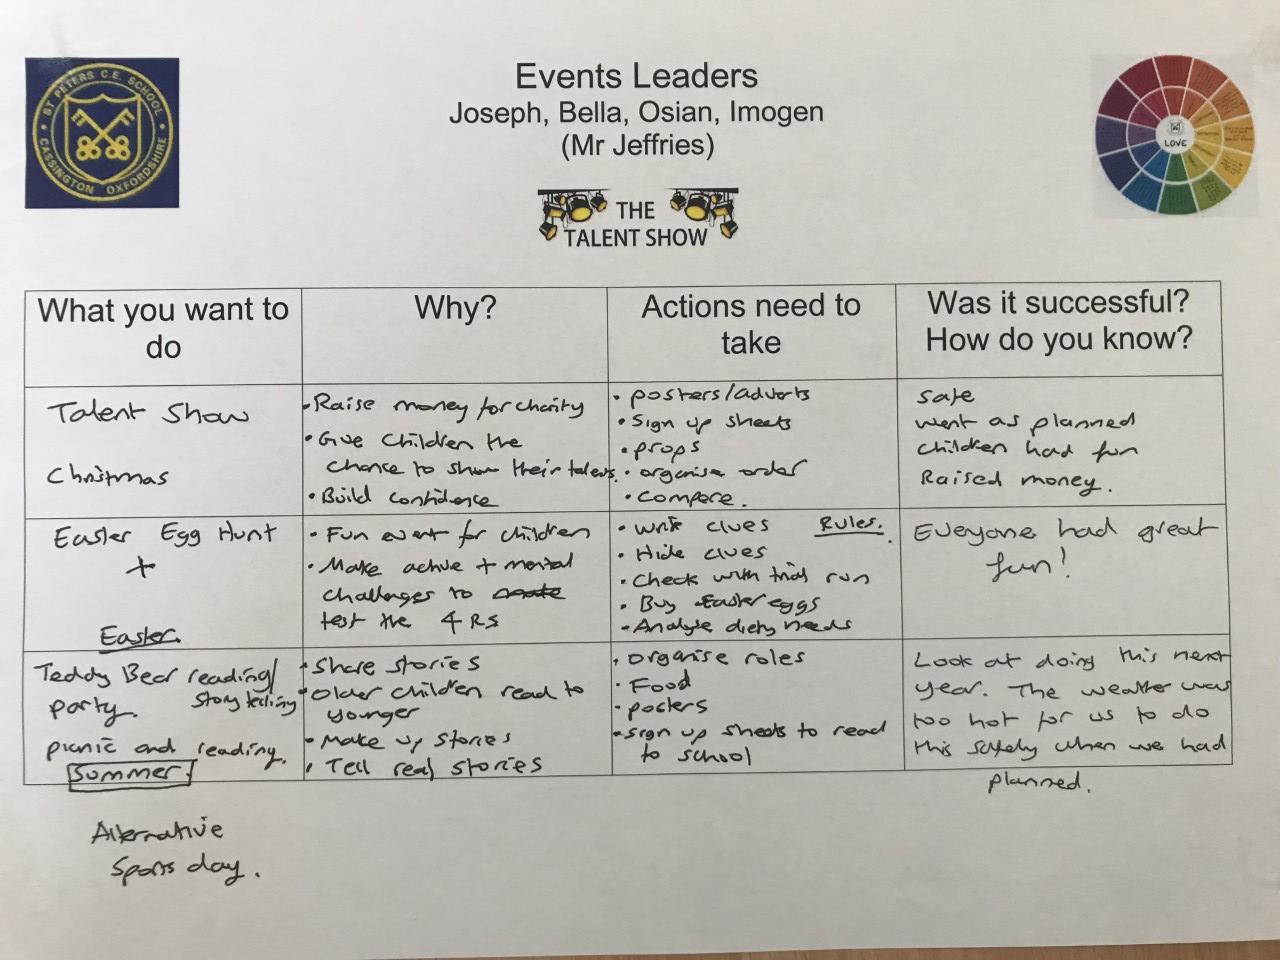 ST PETERS C.E. SCHOOL
CASSINGTON OXFORDSHIRE
Events Leaders
Joseph, Bella, Osian, Imogen
(Mr Jeffries)
LOVE
THE
TALENT SHOW
What you want to
do
Why?
Actions need to
take
Was it successful?
How do you know?
Talent Show
Christmas
• Raise money for charity
• Give children the
chance to show their talents
• Build confidence
• posters/adverts
• Sign up sheets
• props
• organise order
• Compere.
safe
went as planned
children had fun
Raised money.
Easter Egg Hunt
+
Easter.
• Fun event for children
• Make active + mental
challenges to
test the 4 Rs
• Write clues Rules.
• Hide clues
• Check with trial run
• Buy Easter eggs
• Analyse diety needs
Everyone had great
fun!
Teddy Bear reading/
party. Story telling
picnic and reading.
Summer.
• Share stories
• Older children read to
younger
• Make up stories
• Tell real stories
• organise roles
• Food
• posters
• Sign up sheets to read
to school
Look at doing this next
year. The weather was
too hot for us to do
this safely when we had
planned.
Alternative
Sports day.